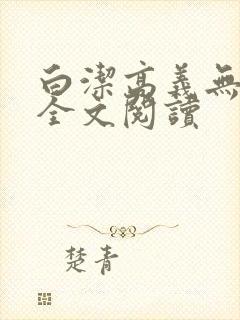 白潔高義無
全文閱讀
楚青